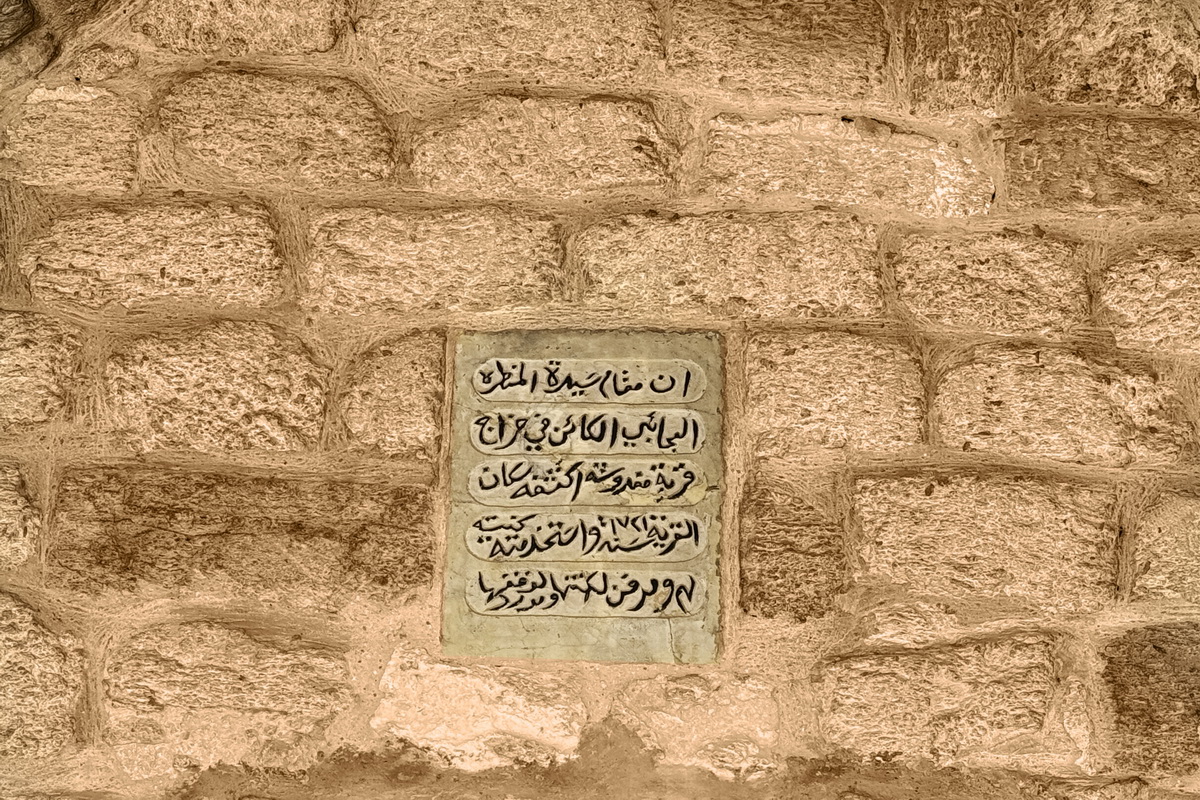 ان مقام سيدة المنطره
العجائبي الكائن في خراج
قرية مغدوشه اكتشفه سكان
القرية سنه ١٧٢١ واستخدمته كنيسة
ومدفن لكهنتها